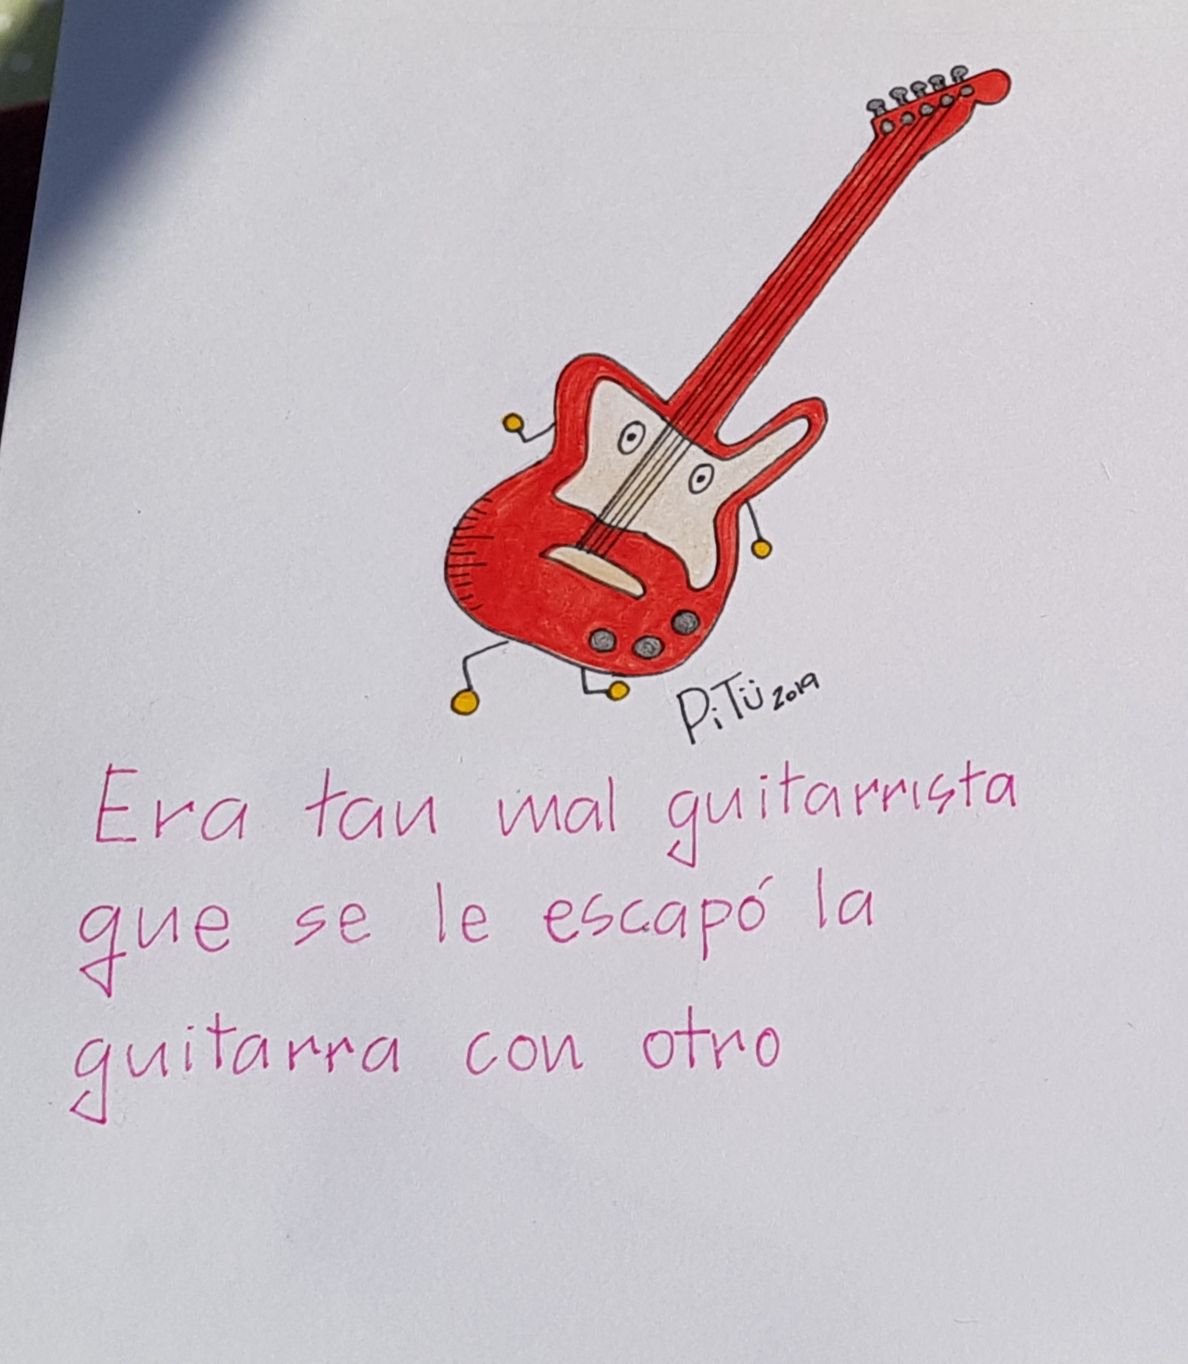 PiTÜ 2019
Era tan mal guitarrista
que se le escapó la
guitarra con otro